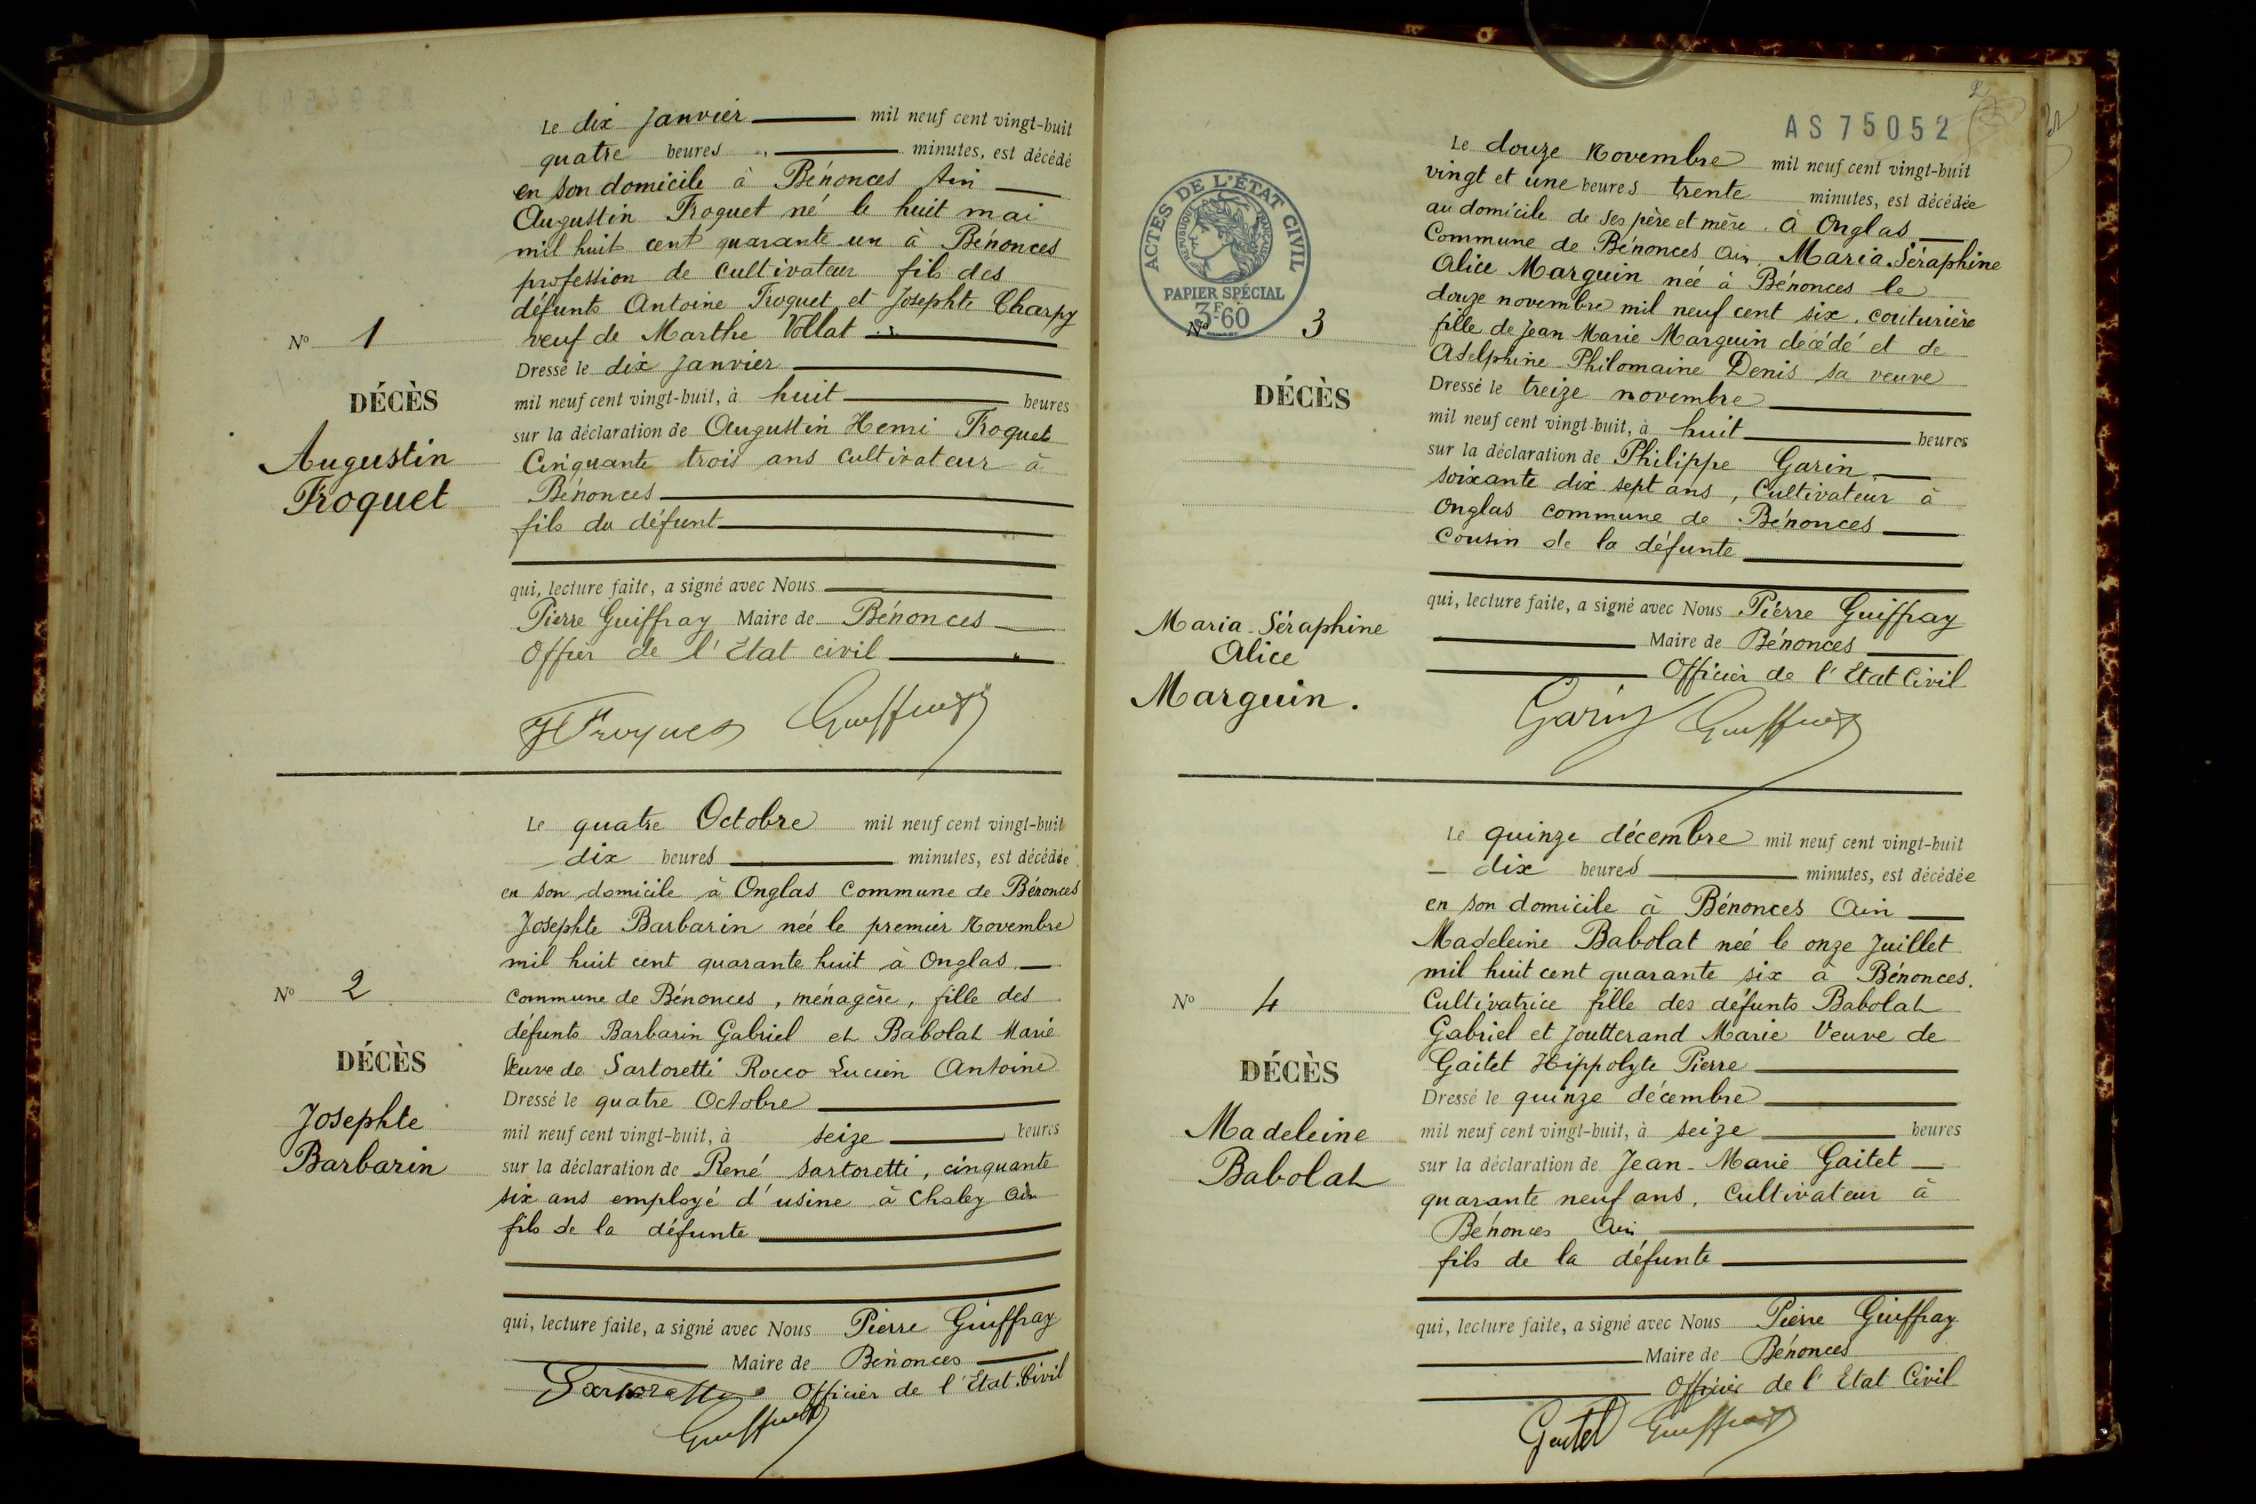 Le dix Janvier mil neuf cent vingt-huit
quatre heures minutes, est décédé
en son domicile à Bénonces Ain
Augustin Froquet né le huit mai
mil huit cent quarante un à Bénonces
profession de cultivateur fils des
défunts Antoine Froquet et Josephte Charpy
veuf de Marthe Vollat
Nº 1
Dressé le dix Janvier
DÉCÈS
mil neuf cent vingt-huit, à huit heures
sur la déclaration de Augustin Henri Froquet
Augustin
Cinquante trois ans cultivateur à
Froquet
Bénonces
fils du défunt
qui, lecture faite, a signé avec Nous
Pierre Guiffray Maire de Bénonces
Offier de l'Etat civil
Le quatre Octobre mil neuf cent vingt-huit
dix heures minutes, est décédée
en son domicile à Onglas Commune de Bénonces
Josephte Barbarin née le premier Novembre
mil huit cent quarante huit à Onglas
Nº 2
commune de Bénonces, ménagère, fille des
défunts Barbarin Gabriel et Babolat Marie
DÉCÈS
Veuve de Sartoretti Rocco Lucien Antoine
Dressé le quatre Octobre
Josephte
mil neuf cent vingt-huit, à seize heures
Barbarin
sur la déclaration de René Sartoretti, cinquante
six ans employé d'usine à Chaley Ain
fils de la défunte
qui, lecture faite, a signé avec Nous Pierre Guiffray
Maire de Bénonces
Officier de l'Etat Civil
AS 75052
ACTES DE L'ÉTAT CIVIL
RÉPUBLIQUE FRANÇAISE
PAPIER SPÉCIAL
3F60
Le douze Novembre mil neuf cent vingt-huit
vingt et une heures trente minutes, est décédée
au domicile de ses père et mère à Onglas
Commune de Bénonces Ain Maria Séraphine
Alice Marguin née à Bénonces le
douze novembre mil neuf cent six, couturière
Nº 3
fille de Jean Marie Marguin décédé et de
Adelphine Philomaine Denis sa veuve
DÉCÈS
Dressé le treize novembre
mil neuf cent vingt-huit, à huit heures
sur la déclaration de Philippe Garin
soixante dix sept ans, Cultivateur à
Onglas commune de Bénonces
Cousin de la défunte
qui, lecture faite, a signé avec Nous Pierre Guiffray
Maria-Séraphine
Maire de Bénonces
Alice
Officier de l'Etat Civil
Marguin.
Garin Guiffray
Le quinze décembre mil neuf cent vingt-huit
dix heures minutes, est décédée
en son domicile à Bénonces Ain
Madeleine Babolat née le onze Juillet
mil huit cent quarante six à Bénonces.
Nº 4
Cultivatrice fille des défunts Babolat
Gabriel et Joutterand Marie Veuve de
DÉCÈS
Gaitet Hippolyte Pierre
Dressé le quinze décembre
Madeleine
mil neuf cent vingt-huit, à seize heures
Babolat
sur la déclaration de Jean-Marie Gaitet
quarante neuf ans, Cultivateur à
Bénonces Ain
fils de la défunte
qui, lecture faite, a signé avec Nous Pierre Guiffray
Maire de Bénonces
Officier de l'Etat Civil
Gaitet Guiffray